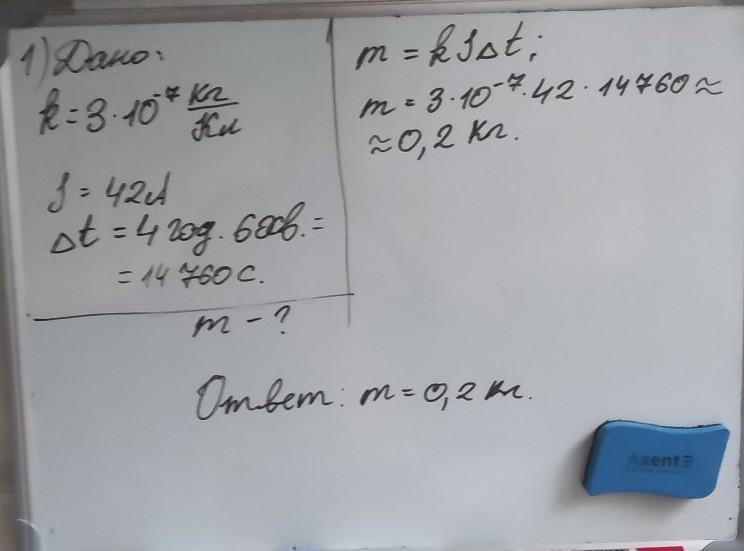 1) Дано:
k = 3·10⁻⁷ Кг/Кл
J = 42А
Δt = 4 год. 6 хв. =
= 14 760 с.
m - ?
m = k J Δt;
m = 3·10⁻⁷·42·14760 ≈
≈ 0,2 Кг.
Ответ: m = 0,2 Кг.
Axent